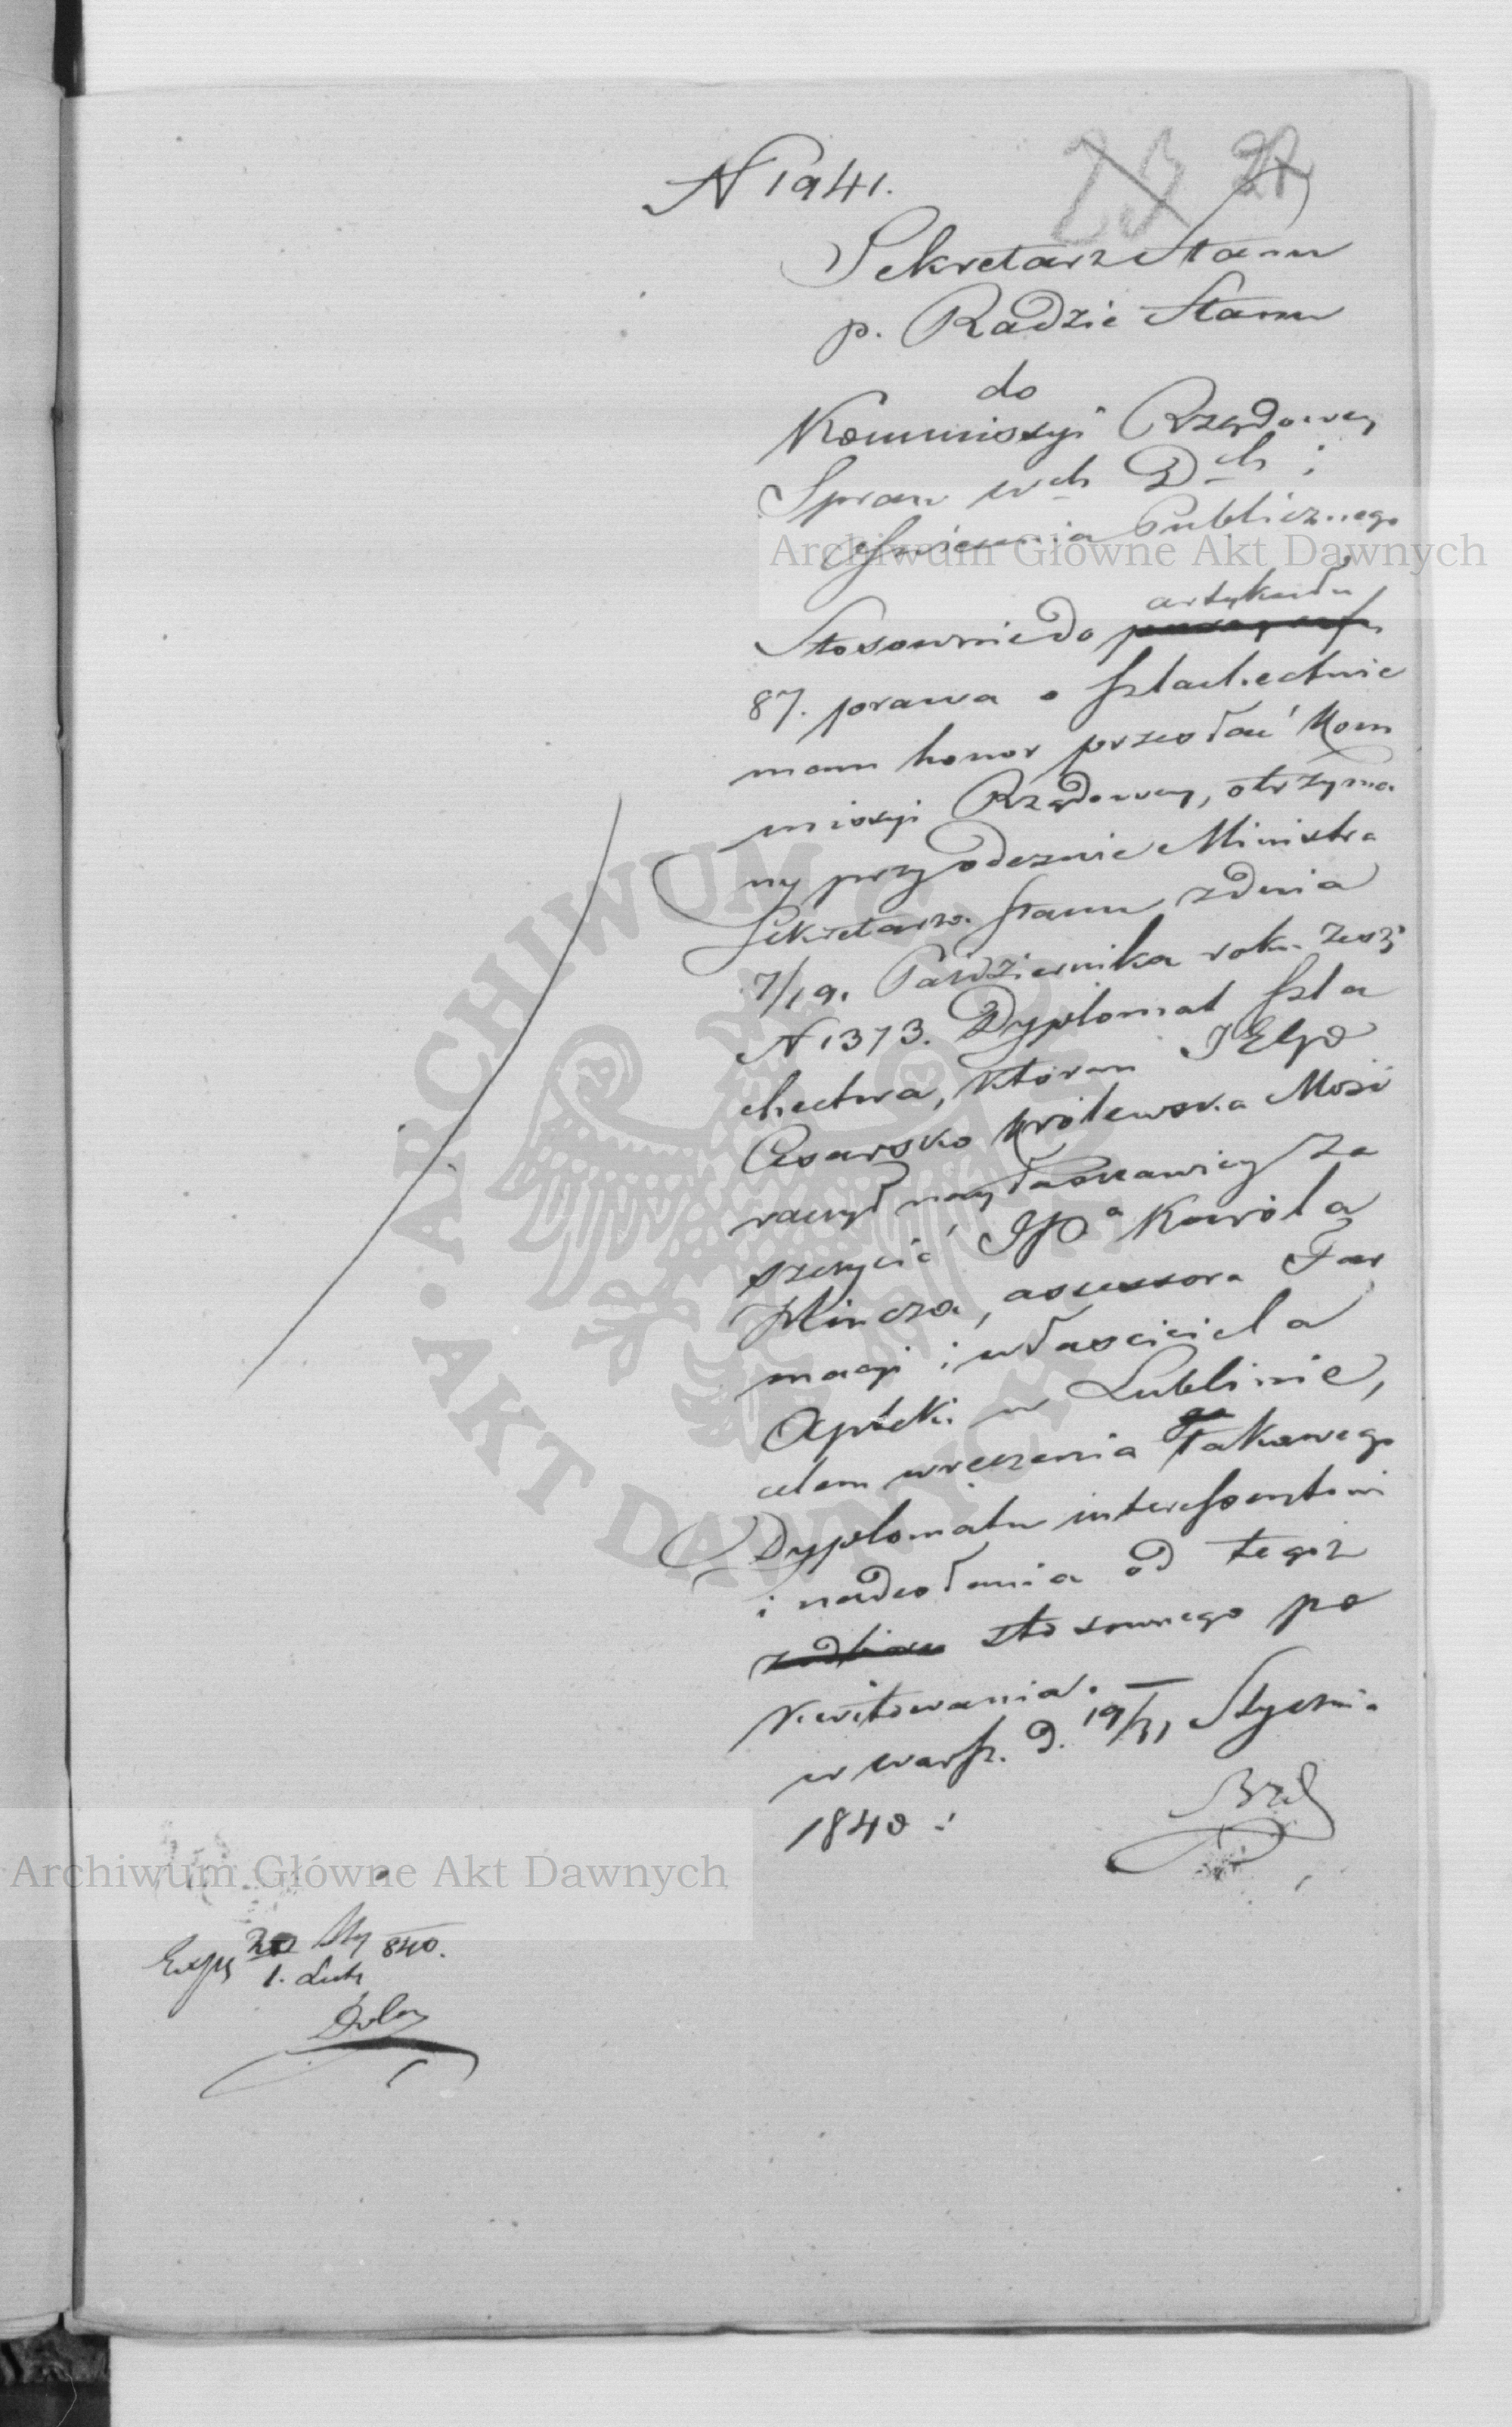 N 1941.
23 27
Sekretarz Stanu
p. Radzie Stanu
do
Kommissyi Rządowey
Spraw Wch Dch i
Oświecenia Publicznego
artykułu
Stosownie do
87. prawa o szlachectwie
mam honor przesłać Kom
missyi Rządowey, otrzyma
ny przy odezwie Ministra
Sekretarza Stanu z dnia
7/19. Października roku zesz:
N 1373. Dyplomat szla
chectwa, którem
Cesarsko Królewska Mość
raczył nayłaskawiey za
szczycić JPa Karola
Hincza, assessora Far
macyi i właściciela
Apteki w Lublinie,
celem wręczenia takowego
Dyplomatu interessentowi
i nadesłania od tegoż
stosownego po
kwitowania. —
w Warsz. d. 19/31 Stycznia
1840 :
Exp 20 Sty 840.
1. Lut
Archiwum Główne Akt Dawnych
Archiwum Główne Akt Dawnych
ARCHIWUM GŁÓWNE AKT DAWNYCH